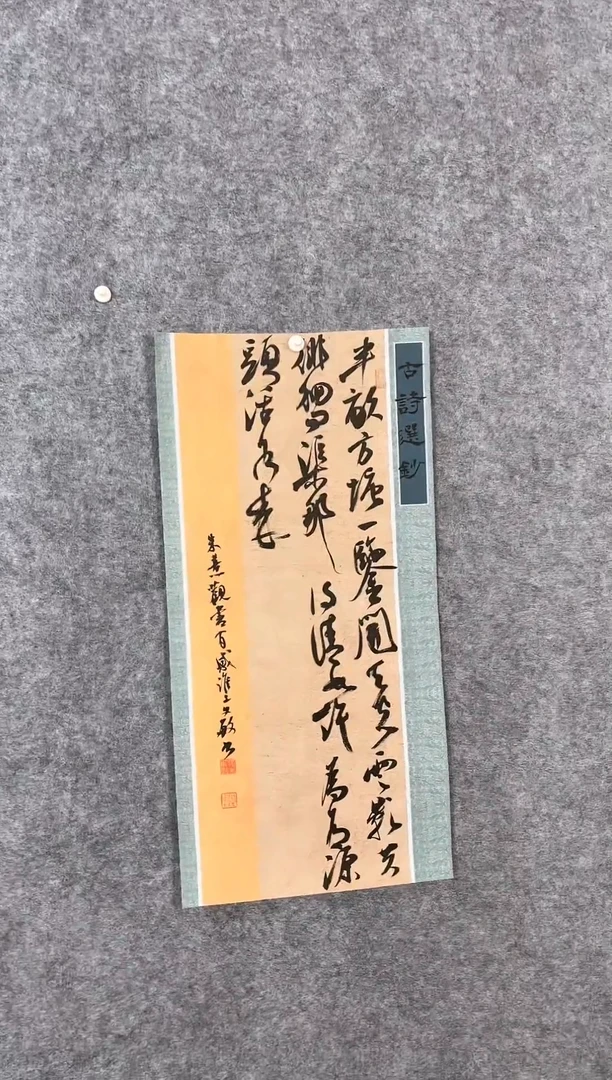 古詩選鈔
半畝方塘一鑒開天光雲影共
徘徊問渠那得清如許為有源
頭活水來
朱熹觀書有感淮上